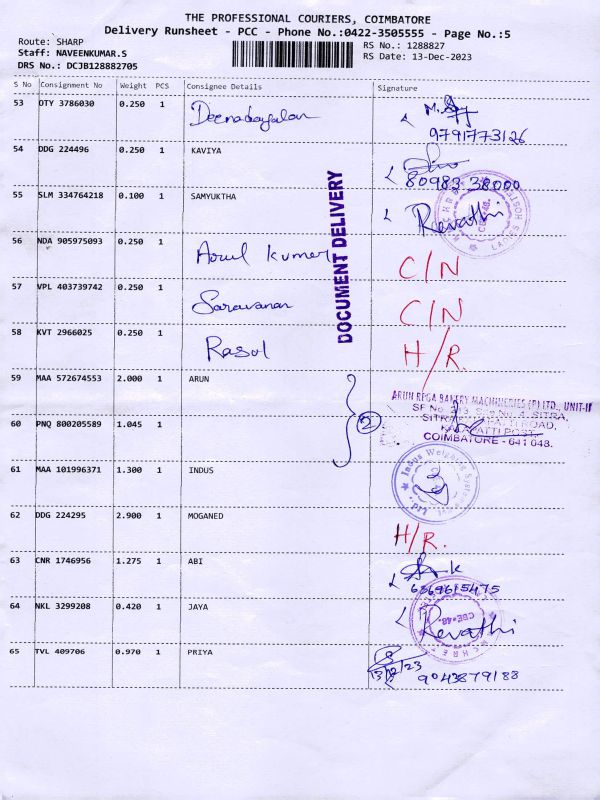 THE PROFESSIONAL COURIERS, COIMBATORE
Delivery Runsheet - PCC - Phone No.:0422-3505555 - Page No.:5
Route: SHARP
Staff: NAVEENKUMAR.S
DRS No.: DCJB128882705
RS No.: 1288827
RS Date: 13-Dec-2023
S No Consignment No Weight PCS Consignee Details Signature
53 OTY 3786030 0.250 1 Deenadayalan
9791773126
54 DDG 224496 0.250 1 KAVIYA
80983 38000
55 SLM 334764218 0.100 1 SAMYUKTHA Revathi
CBE-48.
DOCUMENT DELIVERY
56 NDA 905975093 0.250 1 Arul Kumar C/N
57 VPL 403739742 0.250 1 Saravanan C/N
58 KVT 2966025 0.250 1 Rasul H/R.
59 MAA 572674553 2.000 1 ARUN
2
ARUN REGA BAKERY MACHINERIES (P) LTD., UNIT-II
COIMBATORE - 641 048.
60 PNQ 800205589 1.045 1
61 MAA 101996371 1.300 1 INDUS
62 DDG 224295 2.900 1 MOGANED H/R.
63 CNR 1746956 1.275 1 ABI
6369615475
64 NKL 3299208 0.420 1 JAYA Revathi
CBE-48.
65 TVL 409706 0.970 1 PRIYA
13/12/23
9043879188